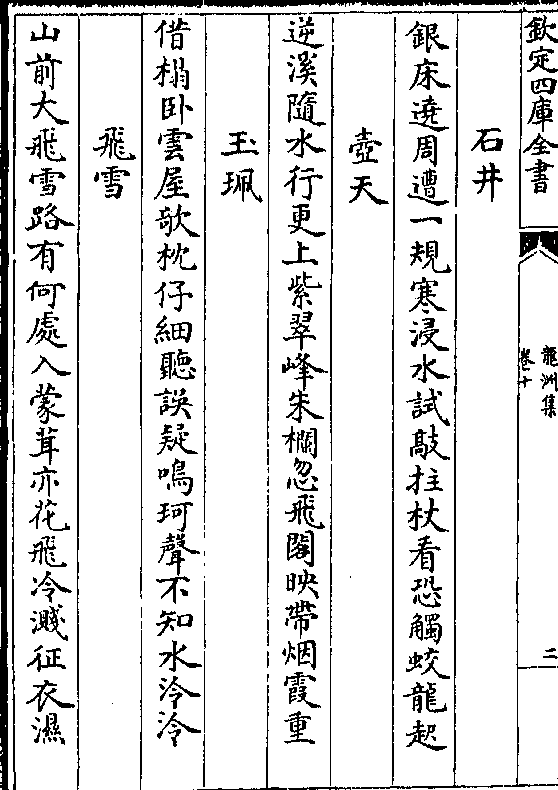 欽定四庫全書
龍洲集
卷十
二
石井
銀床遶周遭一規寒浸水試敲拄杖看恐觸蛟龍起
壺天
逆溪隨水行更上紫翠峰朱欄忽飛閣映帶烟霞重
玉珮
借榻卧雲屋欹枕仔細聽誤疑鳴珂聲不知水泠泠
飛雪
山前大飛雪路有何處入蒙茸亦花飛冷濺征衣濕